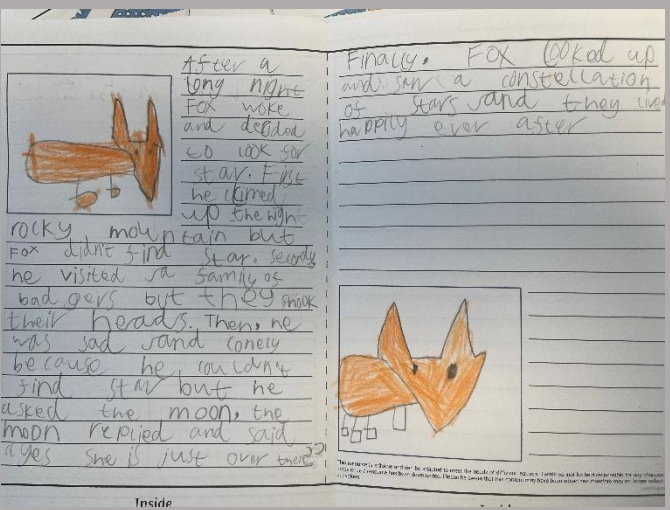 After a
long night
Fox woke
and decided
to look for
star. First
he climed
up the hight
rocky mountain but
Fox didn't find star. secondly
he visited a family of
badgers but they shook
their heads. Then, he
was sad and lonely
because he couldn't
find star but he
asked the moon, the
moon repiied and said
yes she is just over there"
Finally, Fox looked up
and saw a constellation
of stars and they lived
happily ever after
Inside